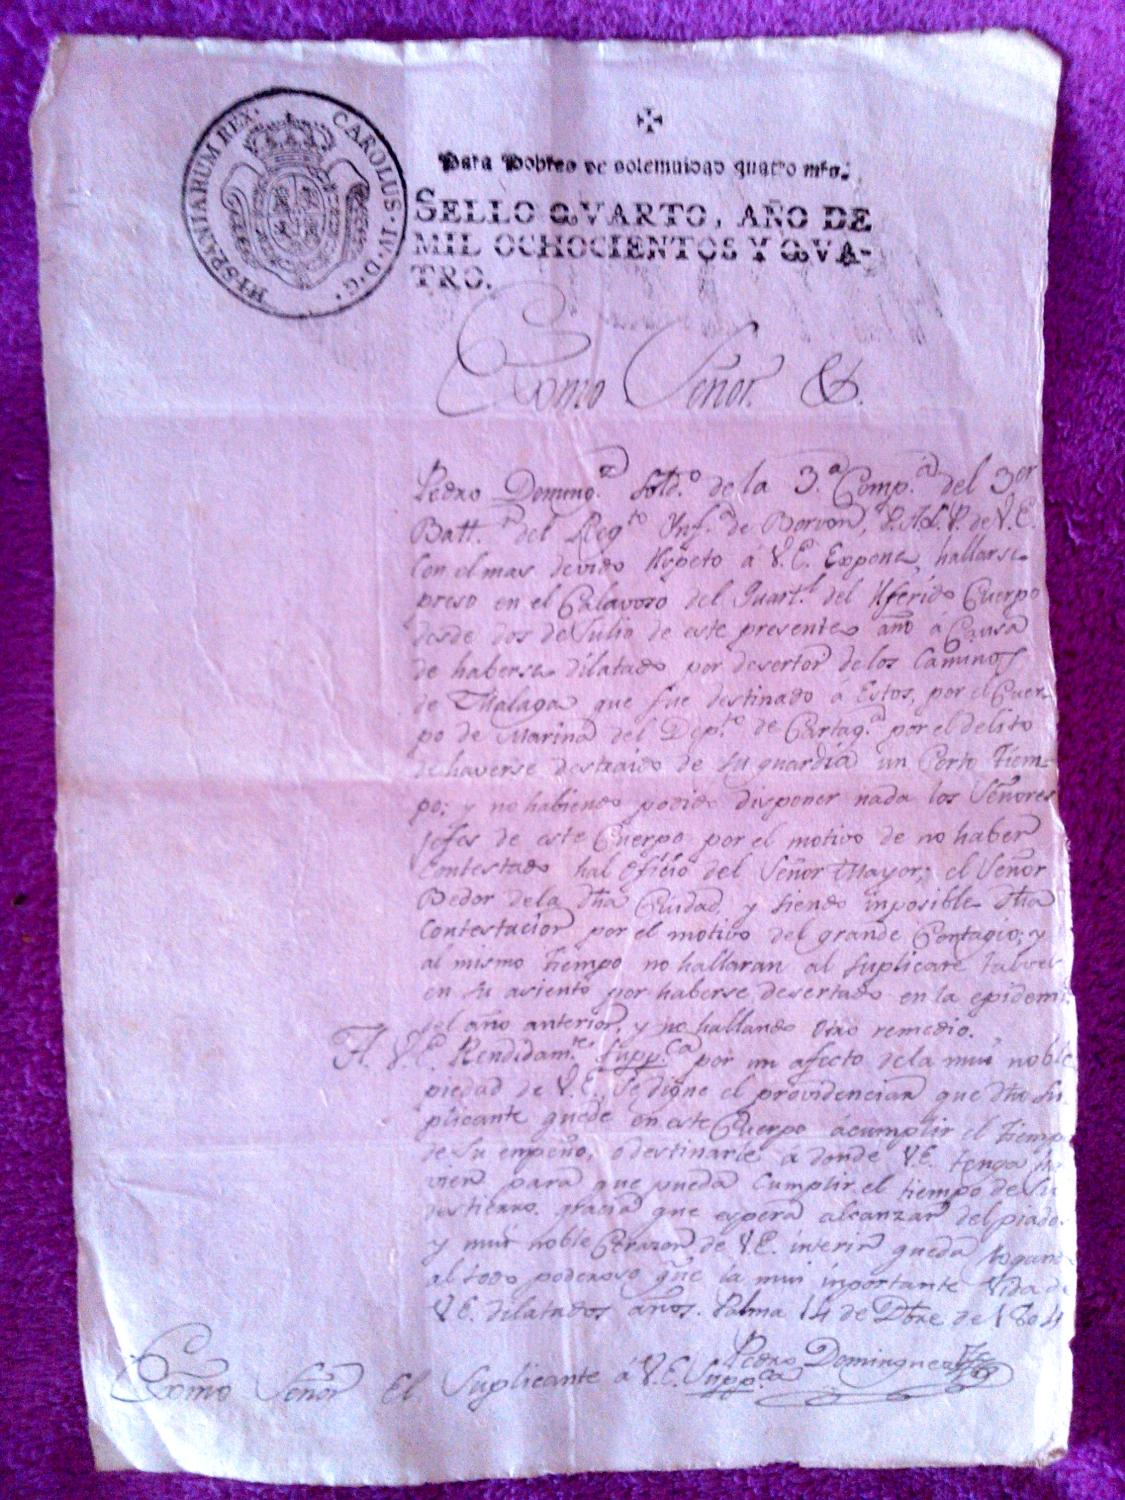 HISPANIARUM REX. CAROLUS. IV. D. G.
Para Pobres de solemnidad quatro mrs.
SELLO QVARTO, AÑO DE
MIL OCHOCIENTOS Y QVA-
TRO.
Exmo Señor &.
Pedro Doming.z Sold.o de la 3.a Comp.a del 3or
Batt.n del Reg.to Inf.a de Borvon, P.A.L.P. de V.E.
Con el mas devido Respeto á V.E. Expone, hallarse
preso en el Calavozo del Quart.l del Referido Cuerpo
desde dos de Julio de este presente año á Causa
de haberse dilatado por desertor de los Caminos
de Malaga que fue destinado á Estos, por el Cuer-
po de Marina del Dep.to de Cartag.a por el delito
de haverse destraido de su guardia un Corto Tiem-
po; y no habiendo podido disponer nada los Señores
Jefes de este Cuerpo por el motivo de no haber
Contestado hal Oficio del Señor Mayor; el Señor
Bedor de la dha Ciudad, y siendo inposible dha
Contestacion por el motivo del grande Contagio; y
al mismo Tiempo no hallaran al Suplicate talves
en su asiento por haberse desertado en la epidemi
del año anterior, y no hallando otro remedio.
A. V.E. Rendidam.te Supp.ca por un afecto de la mui noble
piedad de V.E. Se digne el providenciar que dho Su-
plicante quede en este Cuerpo ácumplir el Tiemp
de su empeño, o destinarle á donde V.E. tenga ha
vien para que pueda Cumplir el tiempo de su
destierro. gracia que espera alcanzar del piado
y mui noble Corazon de V.E. interin queda Rogand
al todo poderoso que la mui inportante Vida de
V.E. dilatados años. Palma 14 de Dbre de 1804
Pedro Dominguez
Exmo Señor El Suplicante á V.E. Supp.ca